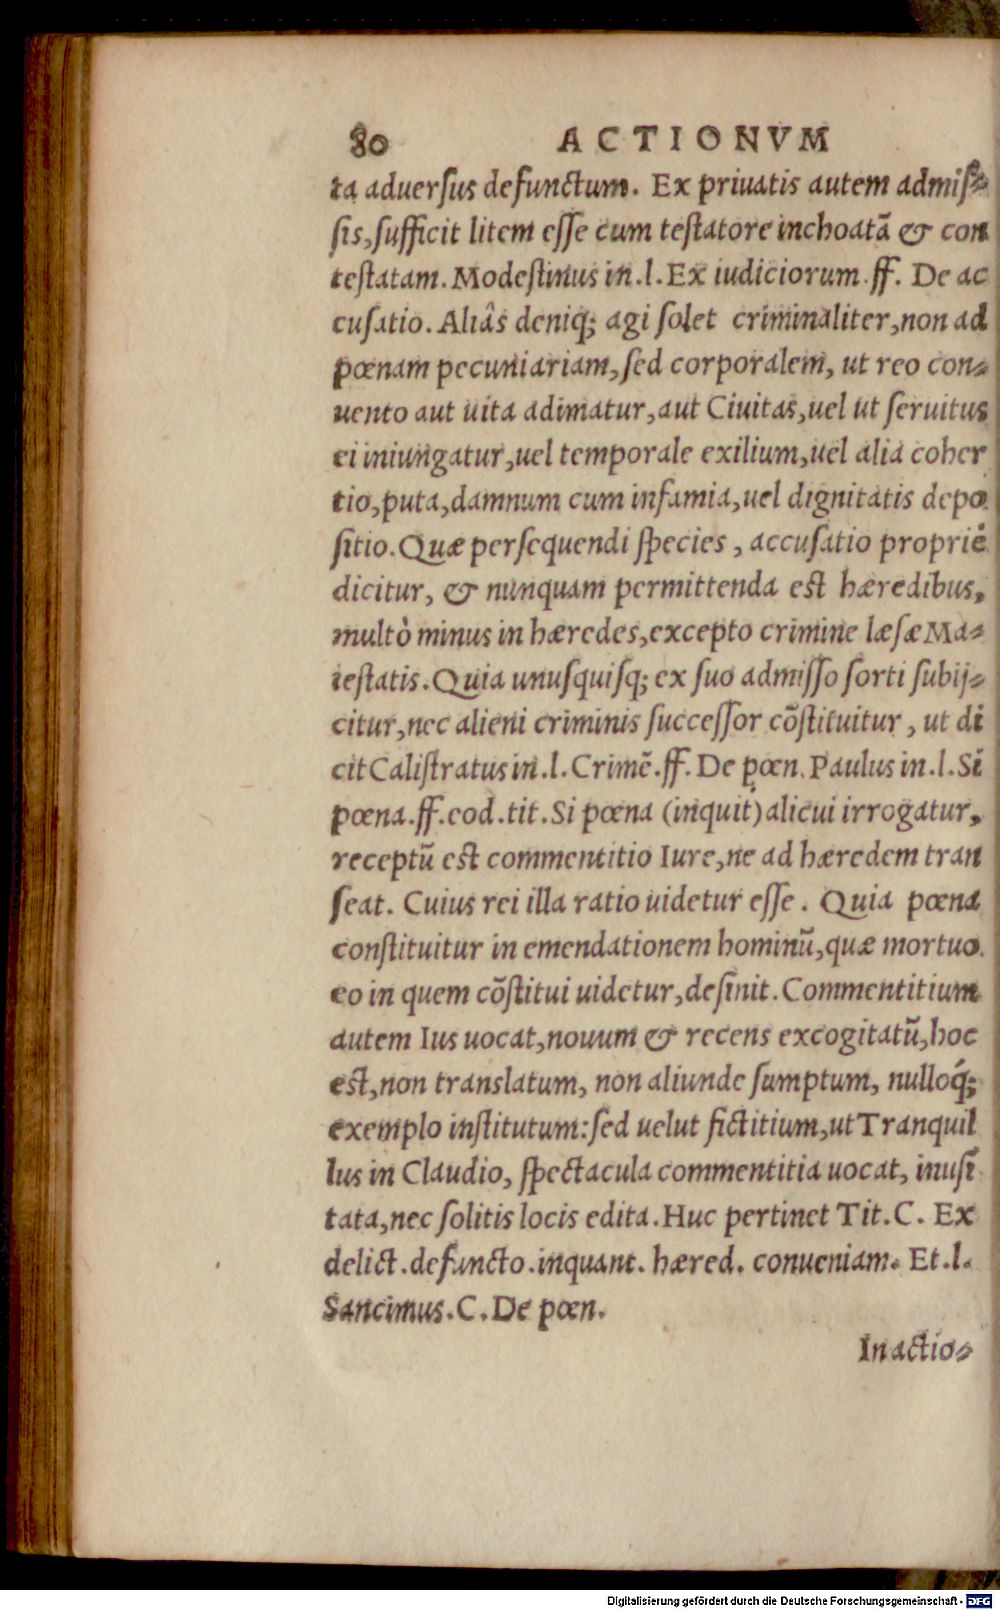 80 ACTIONVM
ta aduerſus defunctum. Ex priuatis autem admiſ-
ſis, ſufficit litem eſſe cum teſtatore inchoatã & con
teſtatam. Modeſtinus in .l. Ex iudiciorum .ff. De ac
cuſatio. Aliâs deniq; agi ſolet criminaliter, non ad
pœnam pecuniariam, ſed corporalem, ut reo con-
uento aut uita adimatur, aut Ciuitas, uel ut ſeruitus
ei iniungatur, uel temporale exilium, uel alia coher
tio, puta, damnum cum infamia, uel dignitatis depo
ſitio. Quæ perſequendi ſpecies, accuſatio propriè
dicitur, & nunquam permittenda eſt hæredibus,
multò minus in hæredes, excepto crimine læſæ Ma-
ieſtatis. Quia unuſquiſq; ex ſuo admiſſo ſorti ſubij-
citur, nec alieni criminis ſucceſſor cõſtituitur, ut di
cit Caliſtratus in .l. Crimẽ .ff. De pœn. Paulus in .l. Si
pœna .ff. eod. tit. Si pœna (inquit) alicui irrogatur,
receptũ eſt commentitio Iure, ne ad hæredem tran
ſeat. Cuius rei illa ratio uidetur eſſe. Quia pœna
conſtituitur in emendationem hominũ, quæ mortuo
eo in quem cõſtitui uidetur, deſinit. Commentitium
autem Ius uocat, nouum & recens excogitatũ, hoc
eſt, non translatum, non aliunde ſumptum, nulloq́;
exemplo inſtitutum: ſed uelut fictitium, ut Tranquil
lus in Claudio, ſpectacula commentitia uocat, inuſi
tata, nec ſolitis locis edita. Huc pertinet Tit. C. Ex
delict. defuncto. inquant. hæred. conueniam. Et .l.
Sancimus. C. De pœn.
In actio-
Digitalisierung gefördert durch die Deutsche Forschungsgemeinschaft - DFG